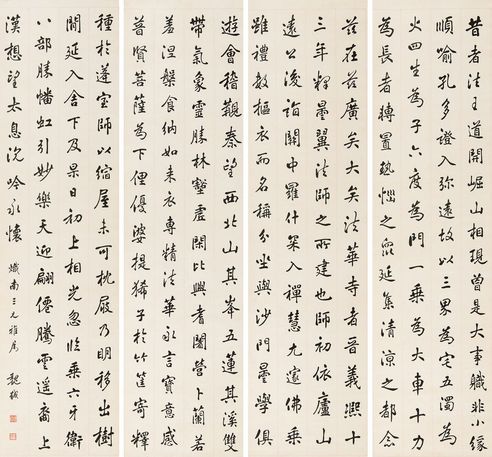 昔者法王道開崛山相現曾是職非小緣
順喻孔多證入弥遠故以三界為宅五濁為
火四生為子六度為門一乗為大車十力
為長者轉置熱惱之衆延集清涼之都念
茲在茲廣矣大矣法華寺者晉義熈十
三年釋曇翼法師之所建師初依廬山
遠公後詣關中羅什深入禪慧尤邃佛乗
雖禮數摳衣而名稱分坐與沙門曇學俱
遊會稽觀秦望西北山其峯五蓮其溪雙
帶氣象靈勝林壑虛閑比興耆闍營卜蘭若
羞涅槃食納如来衣專精法華永言實意感
普賢菩薩為下俚優婆提狶子於竹筐寄釋
種於蓬室師以縮屋未可枕屐乃明移出樹
間延入舍下及杲日初上相光忽臨乗六牙衛
八部勝幡虹引妙樂天迎翩僊騰雲遥裔上
漢想望太息沉吟永懷
熾南三兄雅屬 魏戫